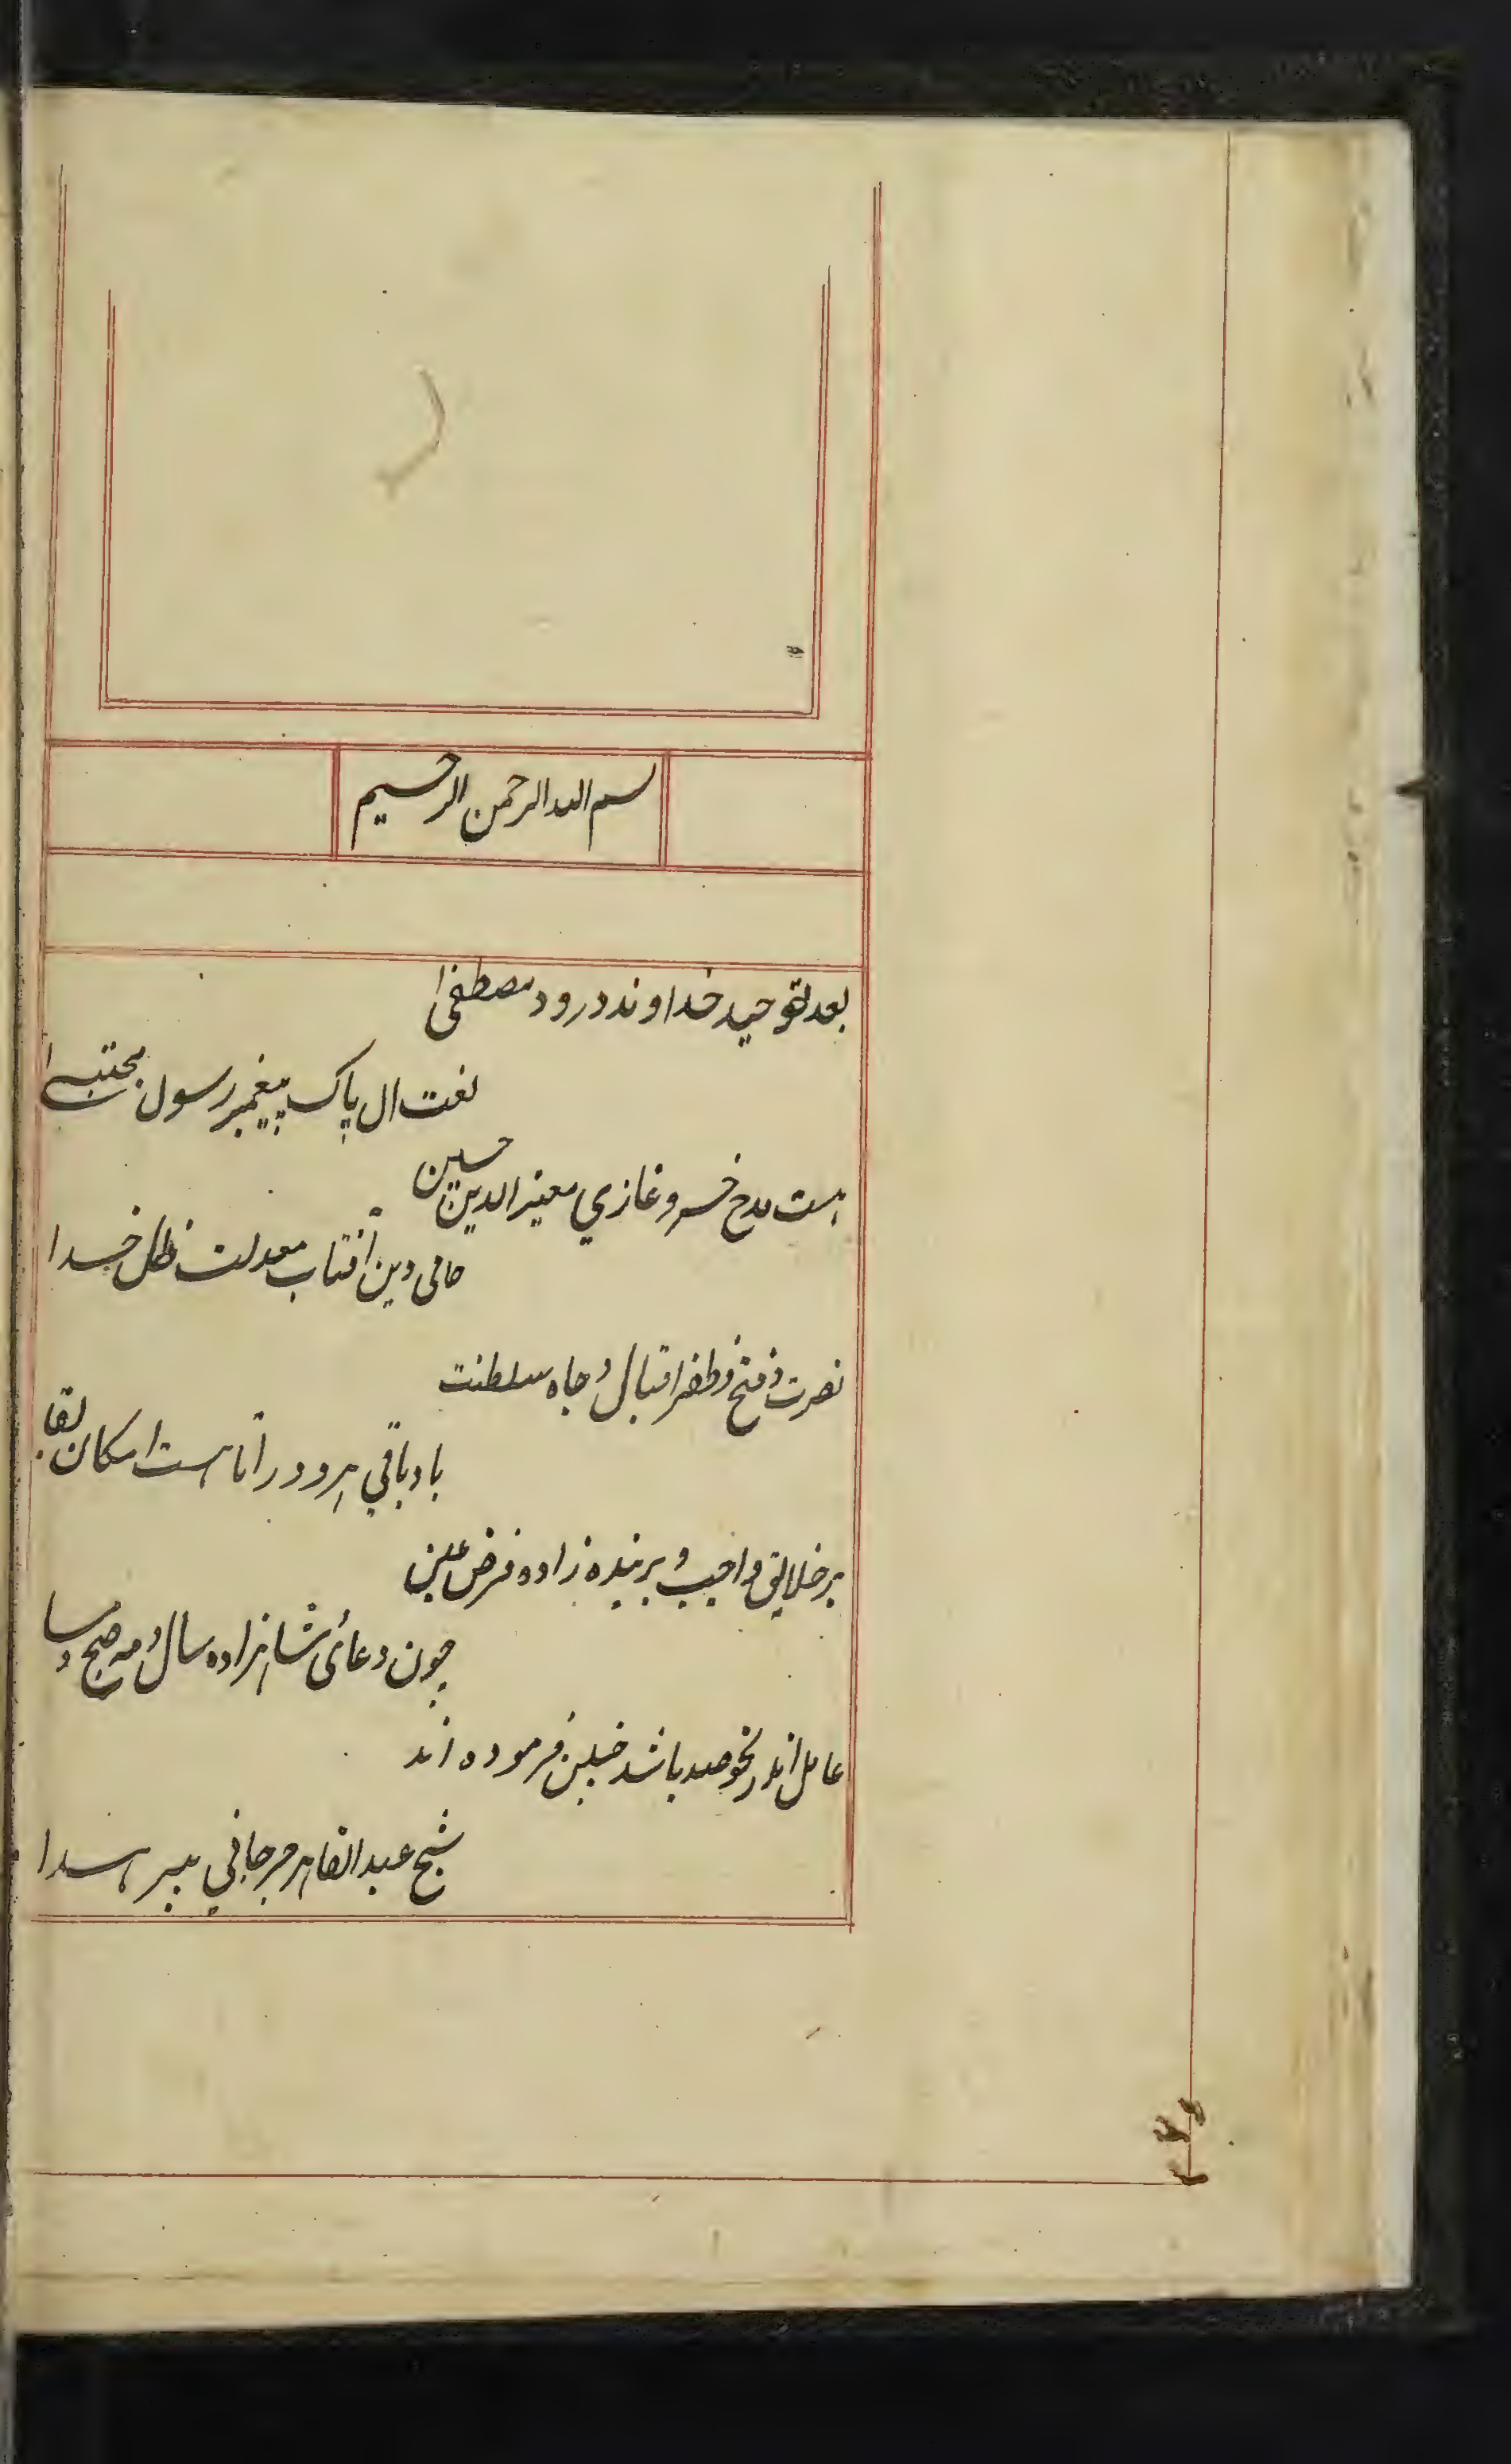 بسم الله الرحمن الرحیم
بعد توحید خداوند درود مصطفی
نعت ال پاک پیغمبر رسول مجتبی
هست مدح خسرو غازي معیز الدین حسین
حامی دین آفتاب معدلت ظل خدا
نصرت و فتح و ظفر اقبال و جاه سلطنت
باد باقي هر دو را تا هست امکان بقا
بر خلایق واجب و بر بنده زاده فرض عین
چون دعائ شاهزاده سال و مه صبح و مسا
عامل اندر نحو صد باشد چنین فرموده اند
شیخ عبد القاهر جرجاني پیر هدا